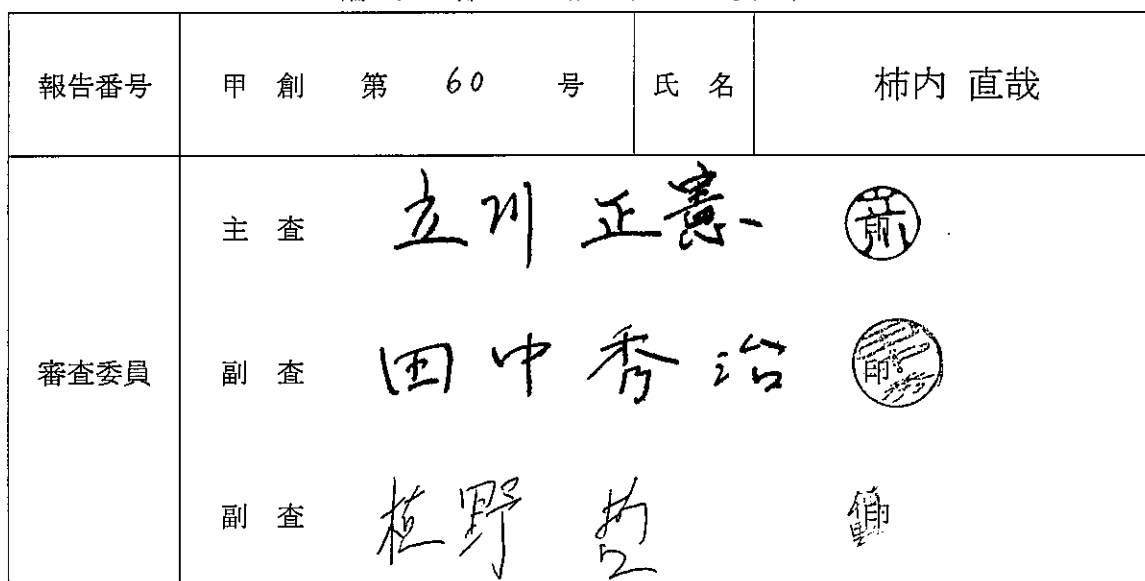 報告番号 甲 創 第 60 号 氏 名 柿内 直哉
主 査 立川 正憲 印
審査委員 副 査 田中 秀治 印
副 査 植野 哲 印